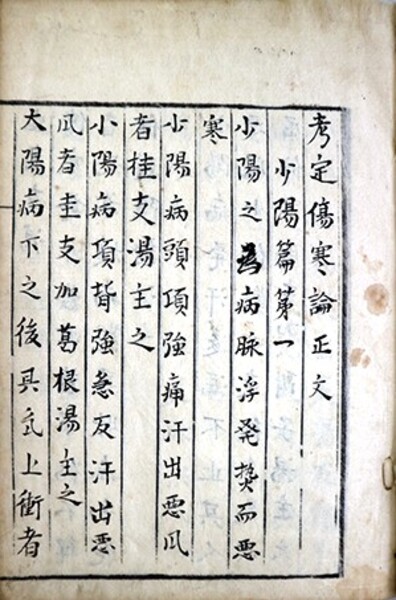 考定傷寒論正文
少陽篇第一
少陽之為病脉浮発熱而悪
寒
少陽病頭項強痛汗出悪凬
者桂支湯主之
小陽病項背強急反汗出悪
凬者圭支加葛根湯主之
大陽病下之後其氣上衝者